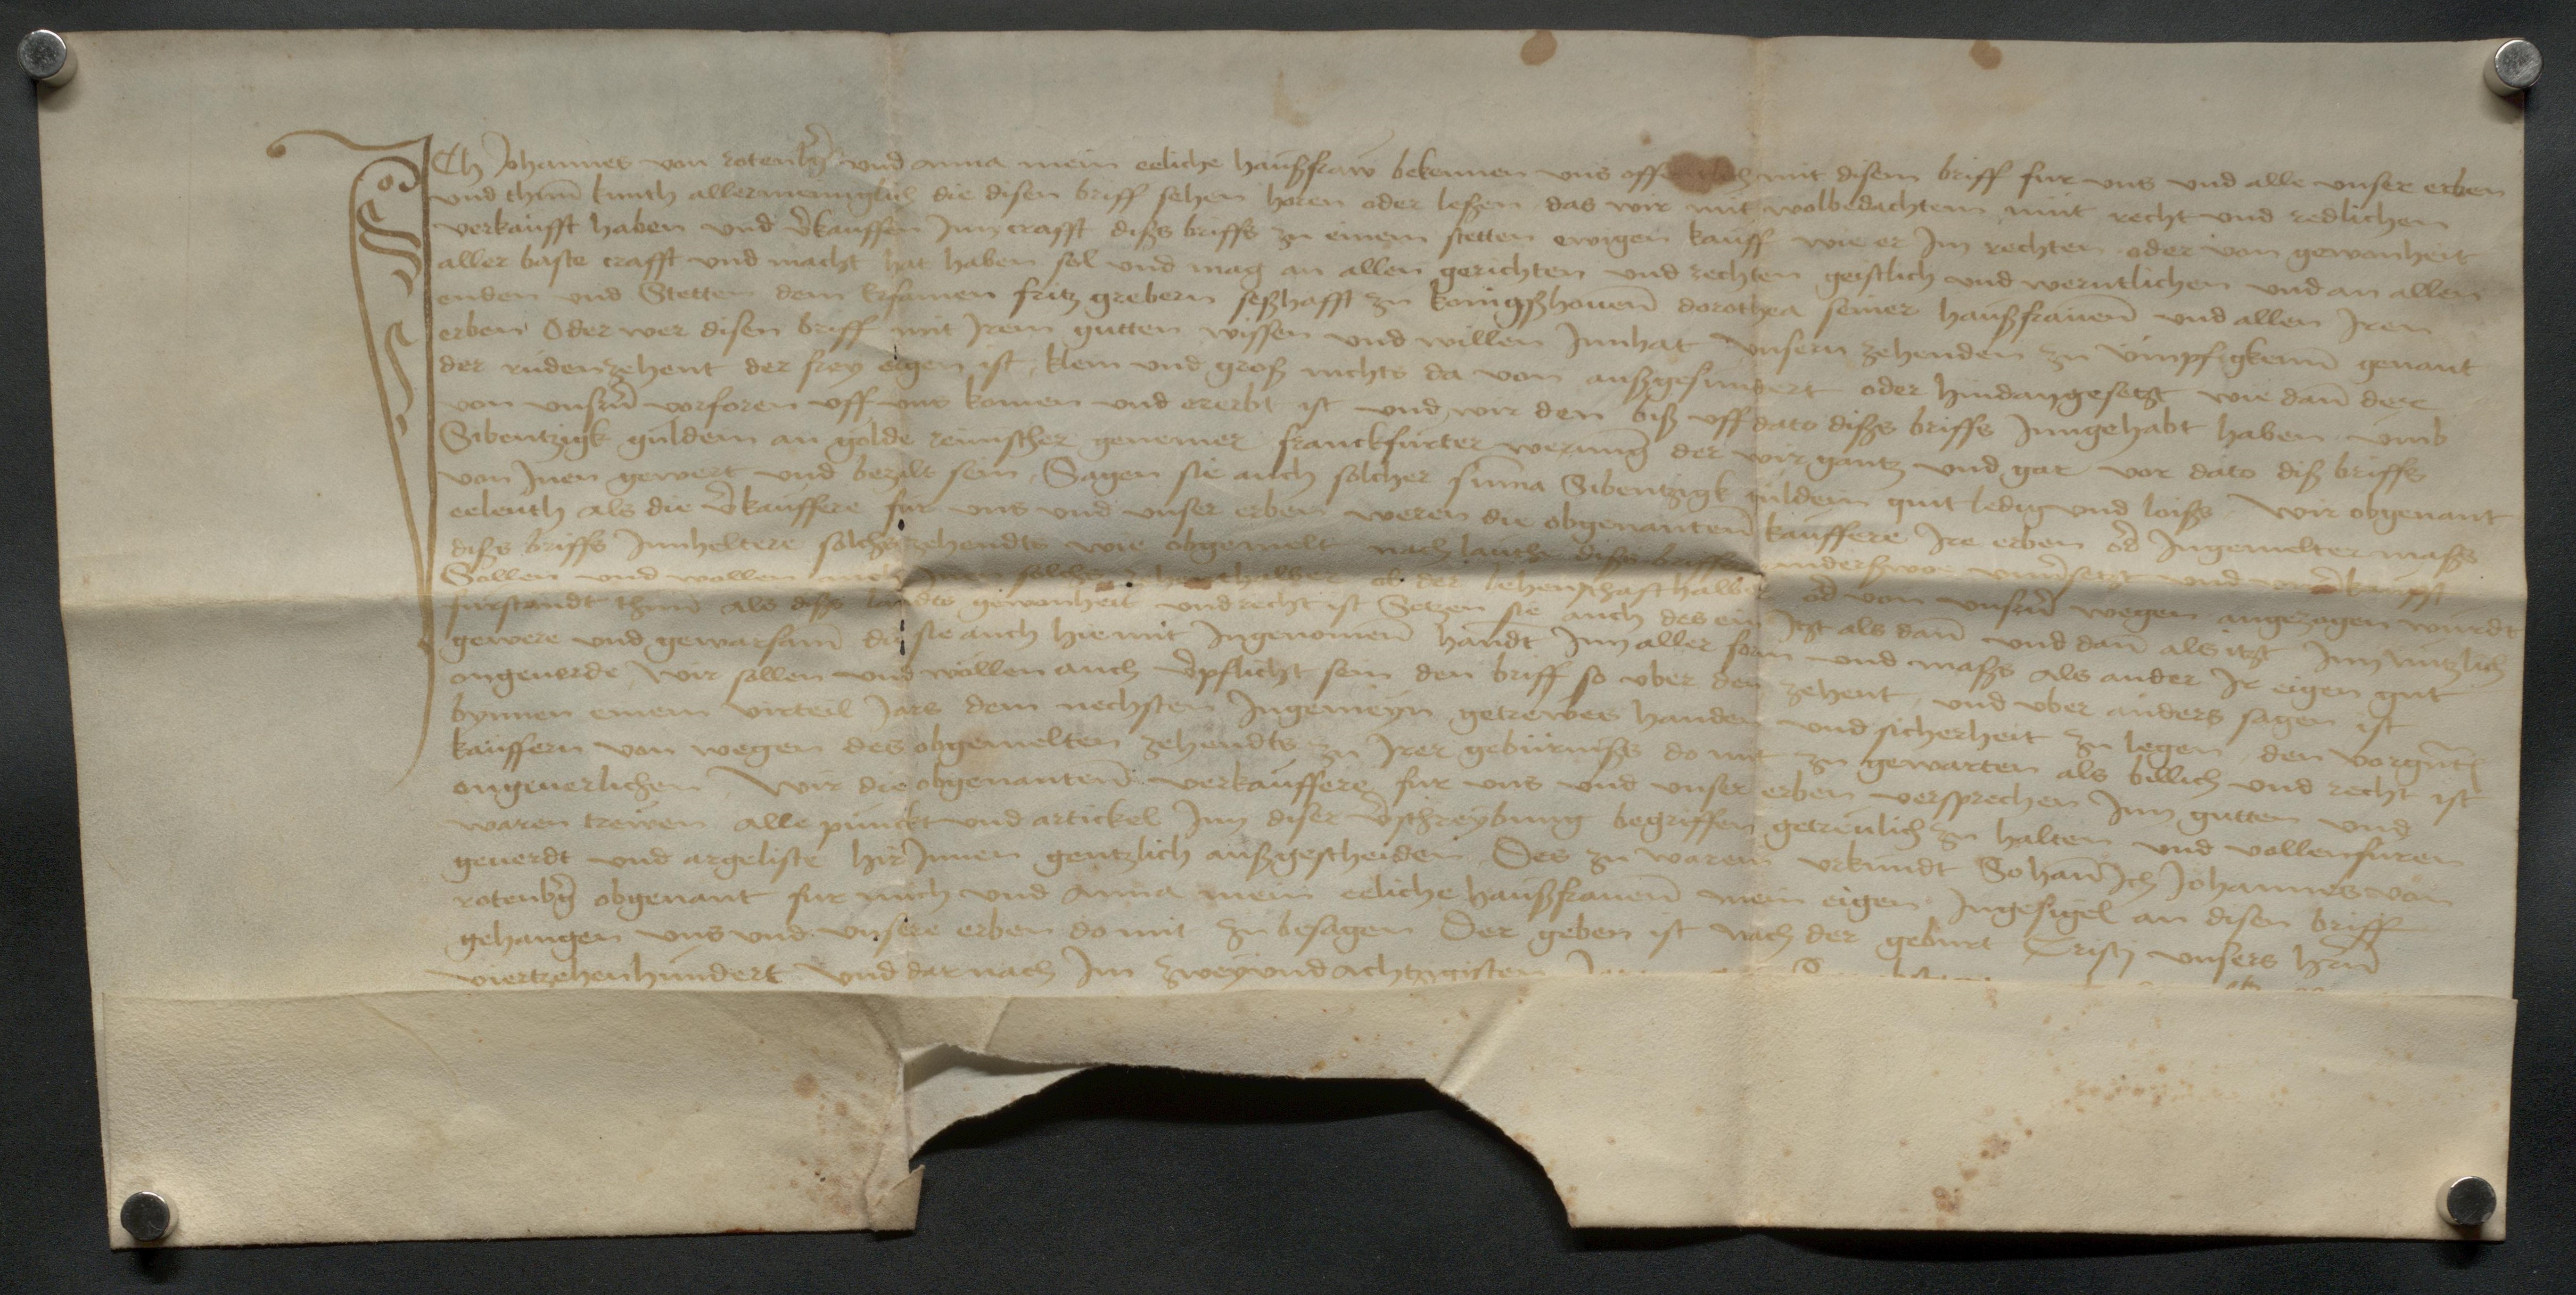 ICh Johannes von rotenb̄g vnd anna mein eeliche haußfraw bekennen vns mit disem briff fur vns vnd alle vnser erben
vnd thun̄ kunth allermeniglich die disen briff sehen horen oder leßen das wir mit wolbedachtem mut recht vnd redlichen
verkaufft haben vnd v̄kauffen Inn crafft dißs briffs zu einem stetten ewigen kauff wie er Im rechten oder von gewonheit
aller baste crafft vnd macht hat haben sol vnd mag an allen gerichten vnd rechten geistlich vnd werntlichen vnd an allen
enden vnd Stetten dem Ersamen fritz grebern seßhafft zu konigßhouen̄ dorothea seiner haußfrauen̄ vnd allen Iren
erben Oder wer disen briff mit Irem gutten wissen vnd willen Innhat vnsern zehenden zu vmpfigkem̄ genant
der rudenzehent der frey eigen ist, klein vnd groß nichts da von außgesundert oder hindangesetzt wie dan̄ der
von vnsern̄ vorforen vff vns komen vnd ererbt ist vnd wir den biß vff dato dißs briffs Inngehabt haben vmb
Sibentzigk guldein an golde reinischer genemer franckfurter werunḡ der wir gantz vnd gar vor dato diß briffs
von Inen gewert vnd bezalt sein, Sagen sie auch solcher sum̄a Sibentzigk guldein quit ledig vnd loißs. Wir obgenant
eeleuth als die v̄kauffere fur vns vnd vnser erben weren die obgenanten̄ kauffere Ire erben od̄ Ingemelter maßs
dißs briffs Innheltere solchs zehendts wie obgemelt nach lauth dißs briffs anderßwoe
Sollen vnd wollen auch ob der lehenschafft halber od̄ von vnsern̄ wegen angezogen wurdt
furstandt thun̄ als dißs landts gewonheit vnd recht ist Setzen sie auch des ein Itzt als dan̄ vnd dan̄ als itzt Inn nutzlich
gewere vnd gewarsam̄ die sie auch hiemit Ingenomen̄ handt Inn aller form vnd maßs als ander Ir eigen gut
ongeuerde, Wir sollen vnd wollen auch v̄pflicht sein den briff so vber den zehent vnd vber anders sagen ist
bynnen einem virteil Jars dem nechsten Ingemeyn getrewes handen vnd sicherheit zu legen, den
kauffern von wegen des obgemelten zehendts zu Irer geburnißs do mit zu gewarten als billich vnd recht ist
ongeuerlichen, Wir die obgenanten̄ verkauffere fur vns vnd vnser erben versprechen Inn gutten vnd
waren trewen alle punckt vnd artickel Inn diser v̄schreybung begriffen getreulich zu halten vnd vollenfuren
geuerdt vnd argeliste hir Innen gentzlich außgescheiden, Des zu warem vrkundt So han̄ Ich Johannes von
rotenb̄g obgenant fur mich vnd Anna mein eeliche haußfrauen̄ mein eigen Ingesigel an disen briff
gehangen vns vnd vnsere erben do mit zu besagen Der geben ist nach der geburt Cristj vnsers hern̄
viertzehenhundert vnd darnach Im zweyvndachtzygisten